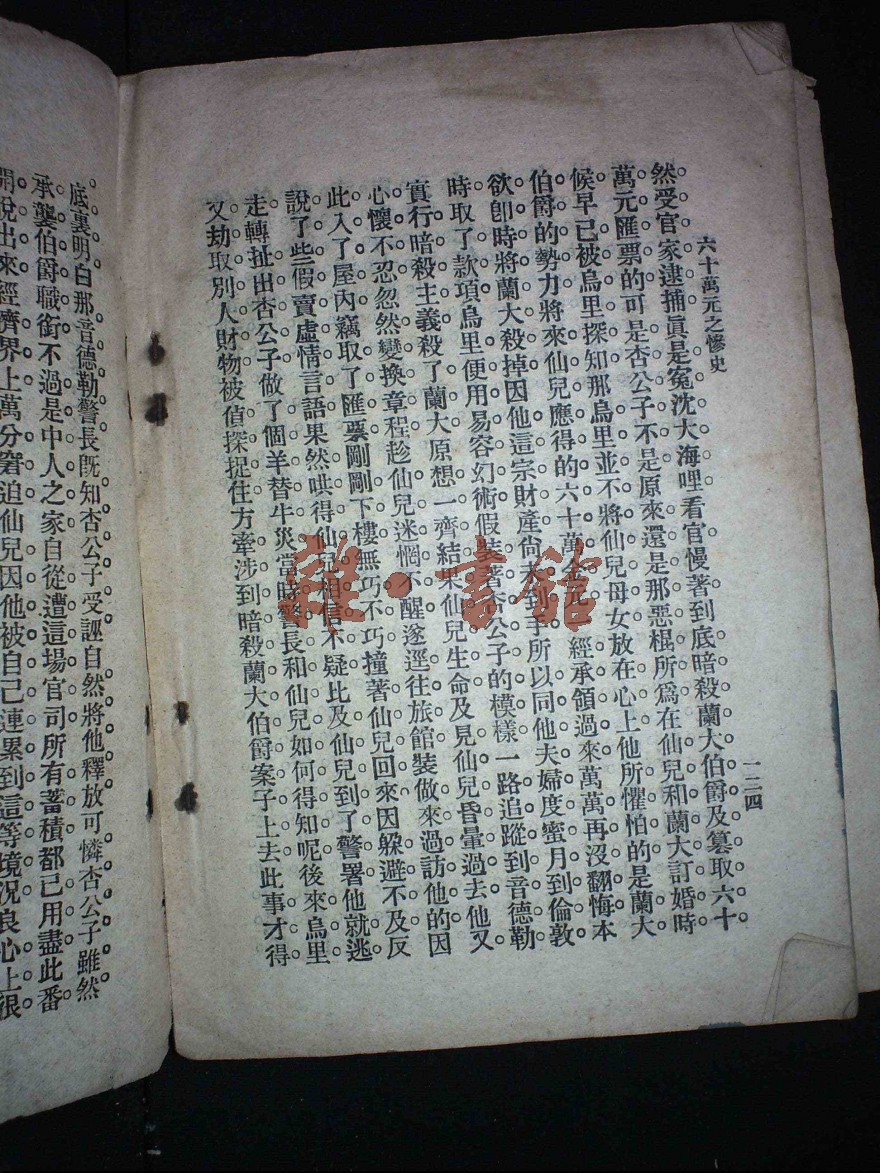 六十萬元之慘史
一二四
然受官家逮捕眞是冤沈大海哩看官慢著到底暗殺蘭大伯爵及篡取六十
萬元匯票的可是杏公子不是原來還是那惡棍所爲在仙兒和蘭大訂婚時
候早已被烏里探知那烏里並不將仙兒母女放在心上他所懼怕的是蘭大
伯爵的勢力將來仙兒應得的六十萬金元一經承領過來萬萬再沒翻悔本
欲卽時將蘭大殺掉因他這宗財產尙未到手所以同他夫婦度蜜月到倫敦
時取了款項烏里便用易容幻術假裝著杏公子的模樣一路追蹤到音德勒
實行暗殺主義殺了蘭大原想一齊結果仙兒生命及見仙兒昏暈過去他又
心懷不忍忽然變換章程趁仙兒迷惘不醒遂逕往旅館裝做來過訪他的因
此入了屋內竊取了匯票剛剛下樓無巧不巧撞著仙兒回來因躲避不及反
說了些假賣虛情言語果然哄得仙兒相信不疑比及仙兒到了警署他就逃
走轉扯出杏公子做了個羊替牛災當時警長和仙兒如何得知呢後來烏里
又劫取別人財物被偵探捉住方牽涉到暗殺蘭大伯爵案子上去此事才得
底裏明白那音德勒警長旣知杏公子受誣自然將他釋放可憐杏公子雖然
承襲伯爵職銜不過是中人之家自從遭這場官司所有蓄積都已用盡此番
說出來經濟界上萬分窘迫仙兒因他被自己連累到這等境況良心上很
雜·書館